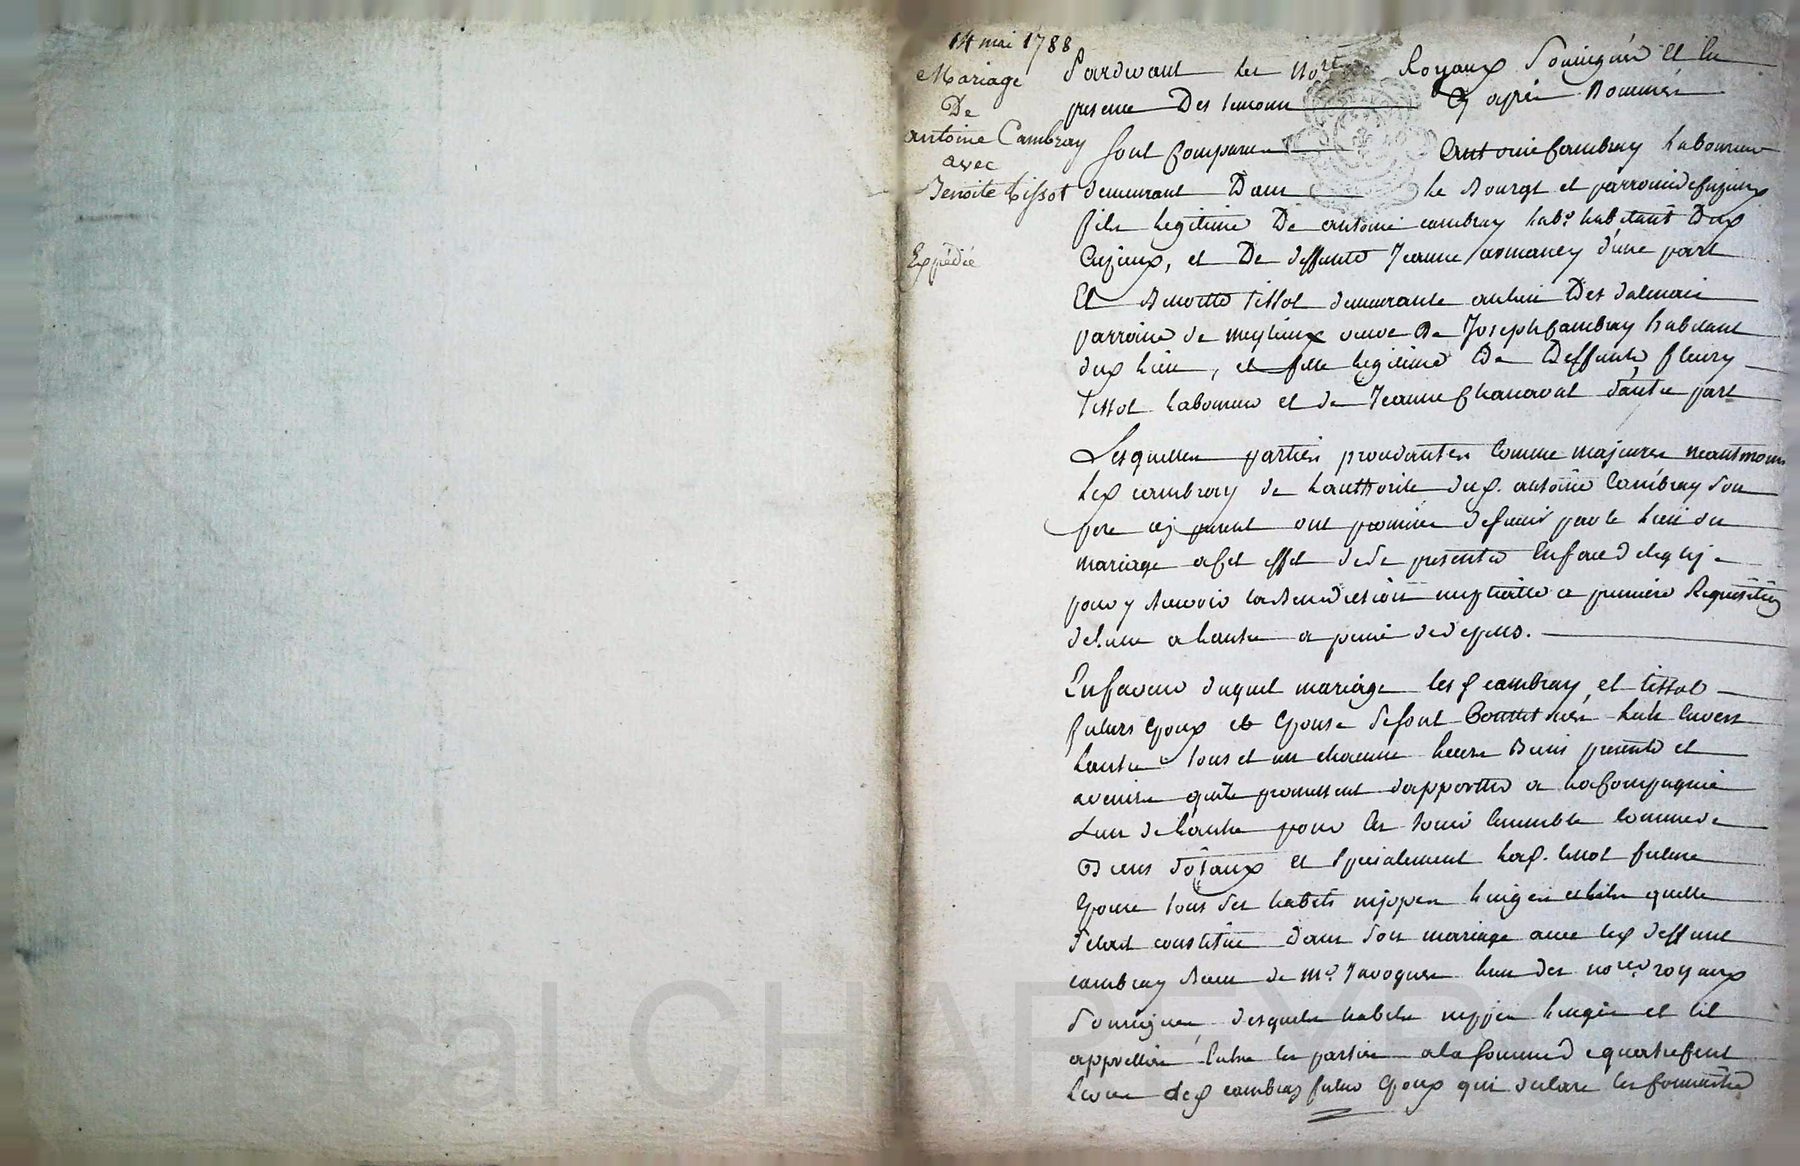 14 mai 1788
Mariage
De
antoine Cambray
avec
Benoite tissot
Expédié
Pardevant les not.res Royaux Soussignés et en
presence Des temoins Cy aprés Nommés
Sont comparus Antoine Cambray laboureur
demeurant Dans le Bourgt et parroisse de Cuzieux
fils legitime De antoine cambray lab.r habitant Dud
Cuzieux, et De deffunte Jeanne d'une part
Et Benoitte tissot demeurante au lieu Des dalmais
parroisse de meylieux veuve De Joseph Cambray habitant
dud lieu, et fille legitime De Deffunts fleury
tissot laboureur et de Jeanne Chanavat d'autre part
Lesquelles parties procedantes comme majeures neantmoins
led cambray de lauthorité dud. antoine Cambray son
pere cy present ont promis de sunir par le lien du
mariage a cet effet de se presenter en face d eglise
pour y recevoir la Benediction nuptialle a premiere Requisition
de lune a lautre a peine de depens.
En faveur duquel mariage les d cambray et tissot
futurs Epoux et Epouse se sont Constitués lun envers
lautre tous et un chacuns leurs Biens presents et
avenirs quils promettent dapporter a la Compagnie
lun de lautre pour les tenir ensemble comme de
Biens dotaux et specialement lad. tissot future
Epouse tous ses habits nippes linges et lit quelle
setait constitué dans son mariage avec led deffunt
cambray Recu de M.e Javogues lun des no.res royaux
Soussignés desquels habits nippes linges et lit
appreciés entre les parties a la somme d e quatre cent
livres led cambray futur Epoux qui declare les connaitre